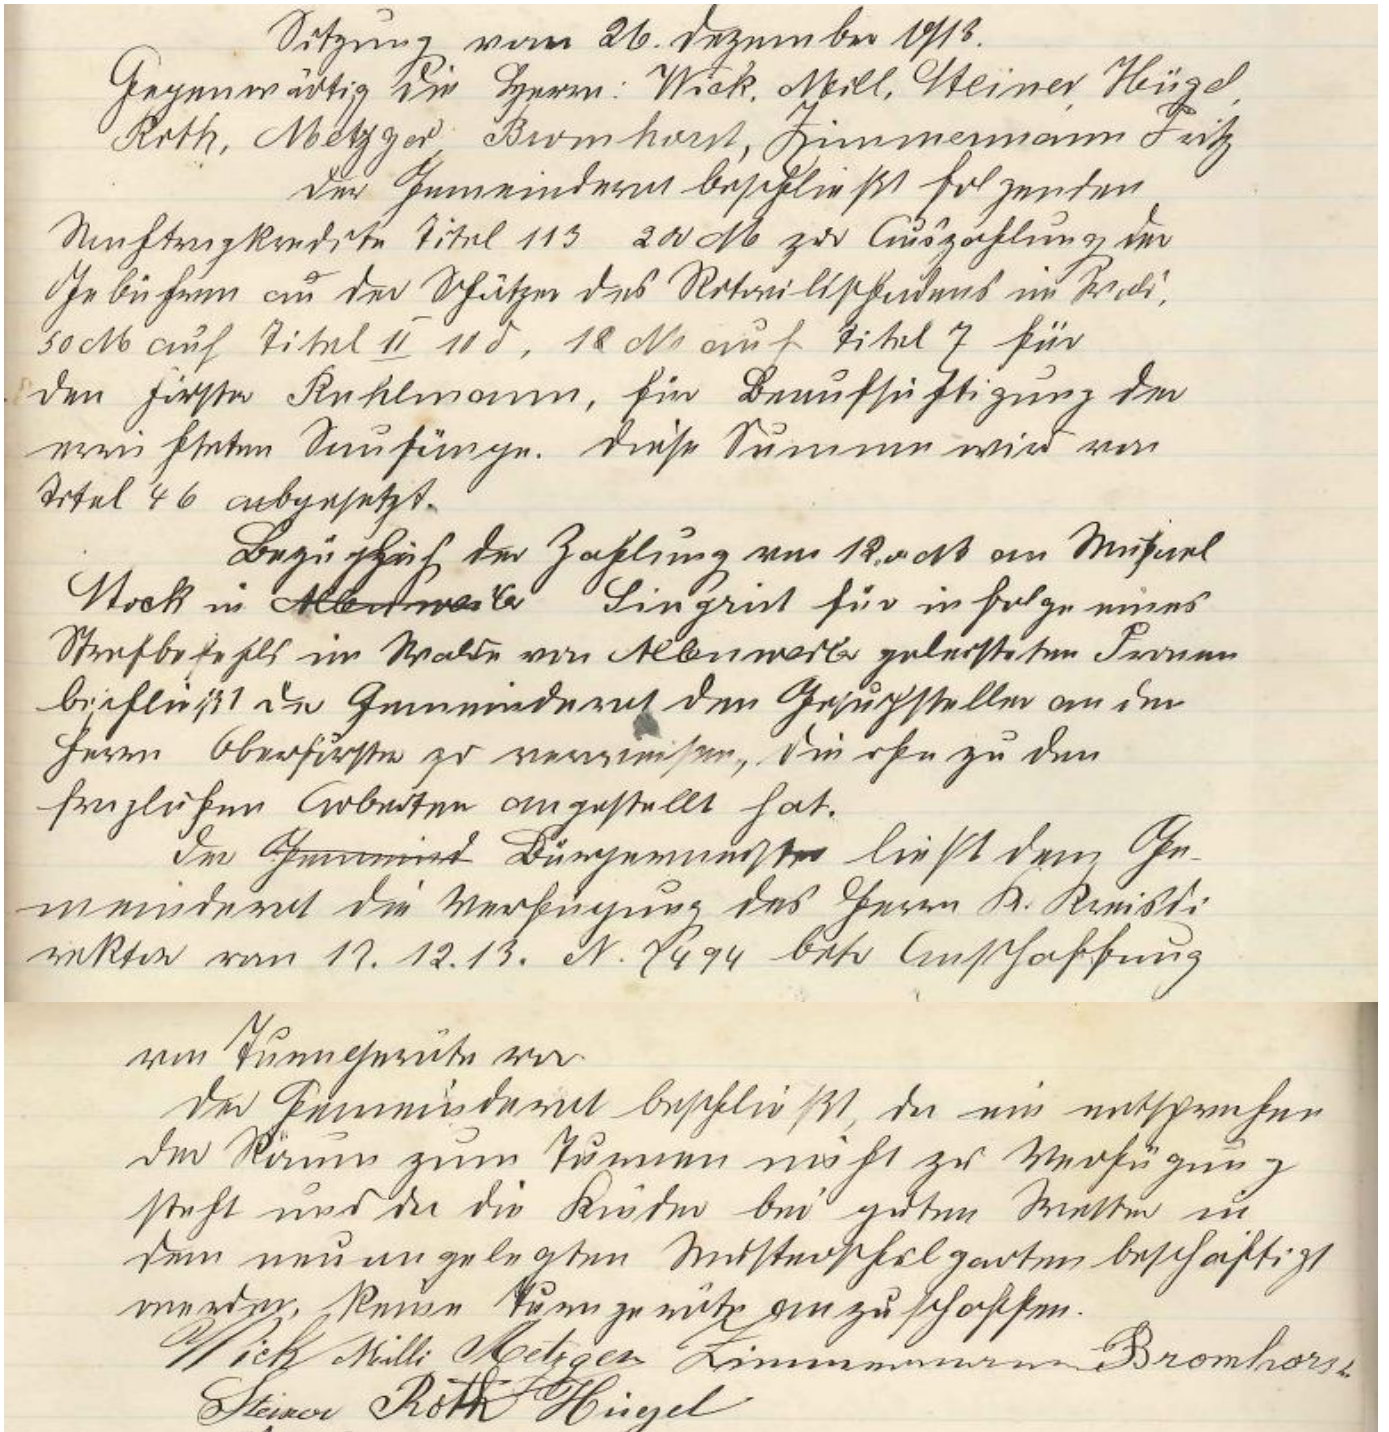 Sitzung vom 26. Dezember 1913.
Gegenwärtig die Herrn: Wick, Mill, Steiner, Hügel,
Roth, Metzger, Bromhorst, Zimmermann Fritz
Der Gemeinderat beschließt folgenden
Nachtragskredite Titel 113 200 M zur Auszahlung der
Gebühren an der Schätzer des Rotwildschadens im Wald,
50 M auf Titel II 10 d, 18 M auf Titel 7 für
den Förster Kuhlmann, für Beaufsichtigung der
errichteten Saufänge. Diese Summe wird von
Titel 46 abgesetzt.
Bezüglich der Zahlung von M an Michael
Stock in Albenweiler Singrist für infolge eines
Strafbefehls im Walde von Albenweiler geleisteten Fronen
beschließt der Gemeinderat den Gesuchsteller an den
Herrn Oberförster zu verweisen, die ihn zu den
fraglichen Arbeiten angestellt hat.
Der Gemeind Bürgermeister ließt dem Ge-
meinderat die Verfügung des Herrn K. Kreisdi
rektor vom 17. 12. 13. N. 7494 betr Anschaffung
von Turngeräte vor.
Der Gemeinderat beschließt, da ein entsprechen
der Raum zum Turnen nicht zur Verfügung
steht und da die Kinder bei guten Wetter in
dem neuangelegten Musterschulgarten beschäftigt
werden, keine Turngeräte anzuschaffen.
Wick Milli Metzger Zimmermann Bromhorst
Steiner Roth Hügel